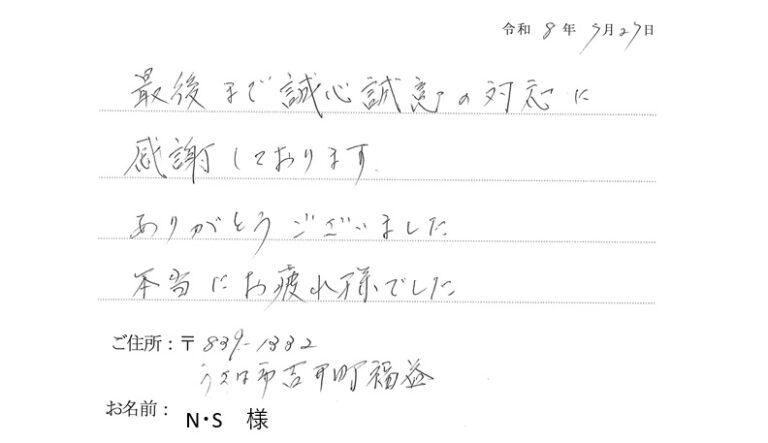 令和 8 年 5月27日
最後まで誠心誠意の対応に
感謝しております.
ありがとうございました
本当にお疲れ様でした
ご住所:〒839-1332
うきは市吉井町福益
お名前: N・S 様